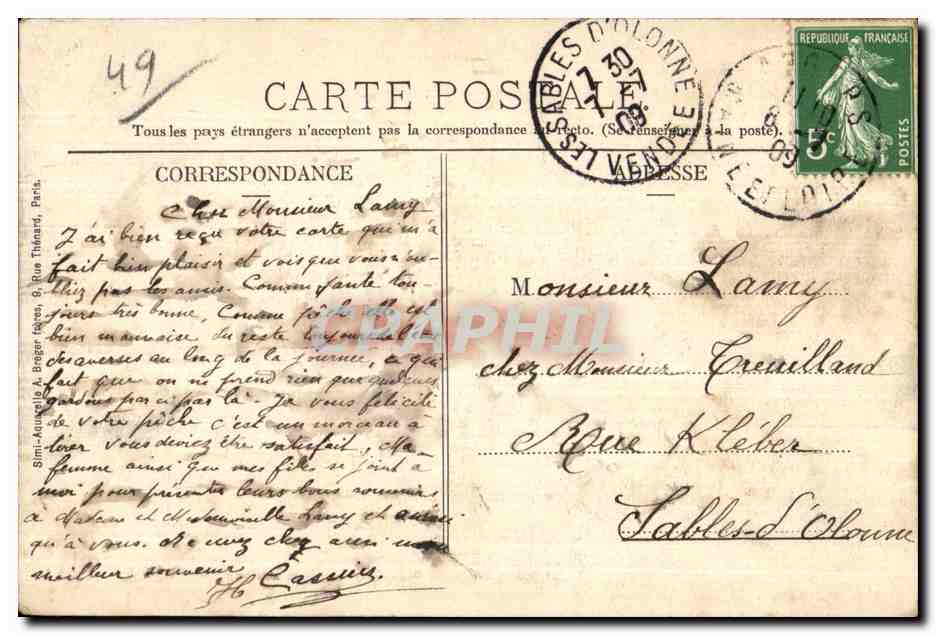 49
CARTE POSTALE
Tous les pays étrangers n'acceptent pas la correspondance au recto. (Se renseigner à la poste).
LES SABLES D'OLONNE
7 30
7 - 7
09
VENDÉE
REPUBLIQUE FRANÇAISE
5c
POSTES
8 - 7
09
MAINE ET LOIRE
CORRESPONDANCE
Cher Monsieur Lamy
J'ai bien reçu votre carte qui m'a
fait bien plaisir et vois que vous n'ou-
bliez pas les amis. Comme santé tou-
jours très bonne, Comme pêche elle est
bien mauvaise du reste toujours
des averses au long de la journée, ce qui
fait que on ne prend rien que quelques
gardons par ci par là. Je vous félicite
de votre pêche c'est un morceau à
tirer vous deviez être satisfait, Ma
femme ainsi que mes filles se joint à
moi pour présenter leurs bons souvenirs
à Madame et Mademoiselle Lamy et aussi
qu'à vous. Recevez cher ami mon
meilleur souvenir
ADRESSE
Monsieur Lamy
chez Monsieur Treuilland
Rue Kléber
Sables-d'Olonne
Simi-Aquarelle A. Breger frères, 9, Rue Thénard, Paris.
CPAPHIL